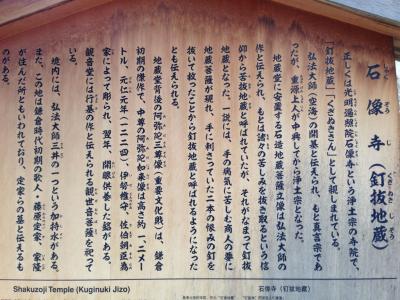 石像寺（釘抜地蔵）
しゃくぞうじ
くぎぬきじぞう
正しくは光明遍照院石像寺という浄土宗の寺院で、
「釘抜地蔵」「くぎぬきさん」として親しまれている。
弘法大師（空海）の開基と伝えられ、もと真言宗であ
ったが、重源上人が中興してから浄土宗となった。
地蔵堂に安置する石造地蔵菩薩立像は弘法大師の
作と伝えられ、もとは諸々の苦しみを抜き取るという信
仰から苦抜地蔵と呼ばれていたが、それがなまって釘抜
地蔵となった。一説には、手の病気に苦しむ商人の夢に
地蔵菩薩が現れ、手に刺さっていた二本の恨みの釘を
抜いて救ったことから釘抜地蔵と呼ばれるようになった
とも伝えられる。
地蔵堂背後の阿弥陀三尊像（重要文化財）は、鎌倉
初期の傑作で、中尊の阿弥陀如来像は高さ約一、二メー
トル、元仁元年（一二二四）伊勢権守、佐伯朝臣為
家によって彫られ、翌年、開眼供養した銘がある。
観音堂には行基の作と伝えられる観世音菩薩を祀って
いる。
境内には、弘法大師三井の一つという加持水がある。
また、この地は鎌倉時代初期の歌人・藤原定家、家隆
が住んだ所ともいわれており、定家らの墓と伝えるも
のがある。
Shakuzoji Temple (Kuginuki Jizo)
石像寺（釘抜地蔵）